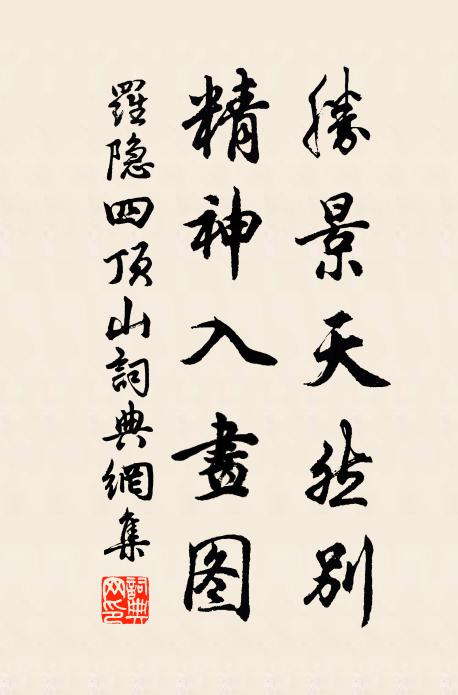 勝景天然别
精神入畫图
羅隐四顶山詞典網集
詞典网印